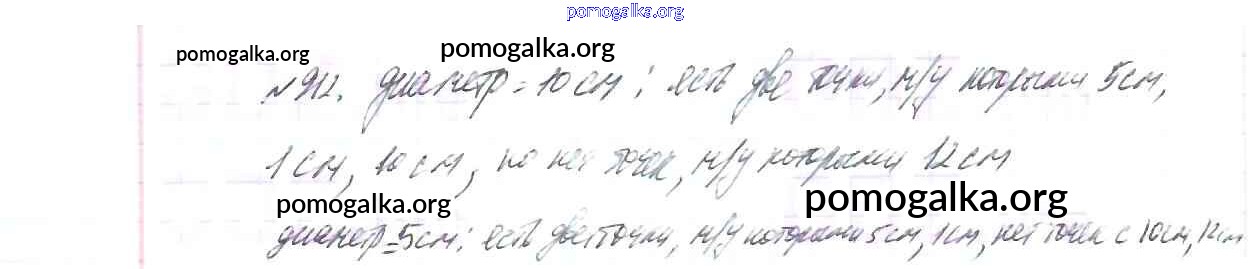 pomogalka.org
pomogalka.org pomogalka.org
№912. диаметр = 10 см: есть две точки, м/у которыми 5 см,
1 см, 10 см, но нет точек, м/у которыми 12 см
pomogalka.org pomogalka.org
диаметр = 5 см: есть две точки, м/у которыми 5 см, 1 см, нет точек с 10 см, 12 см